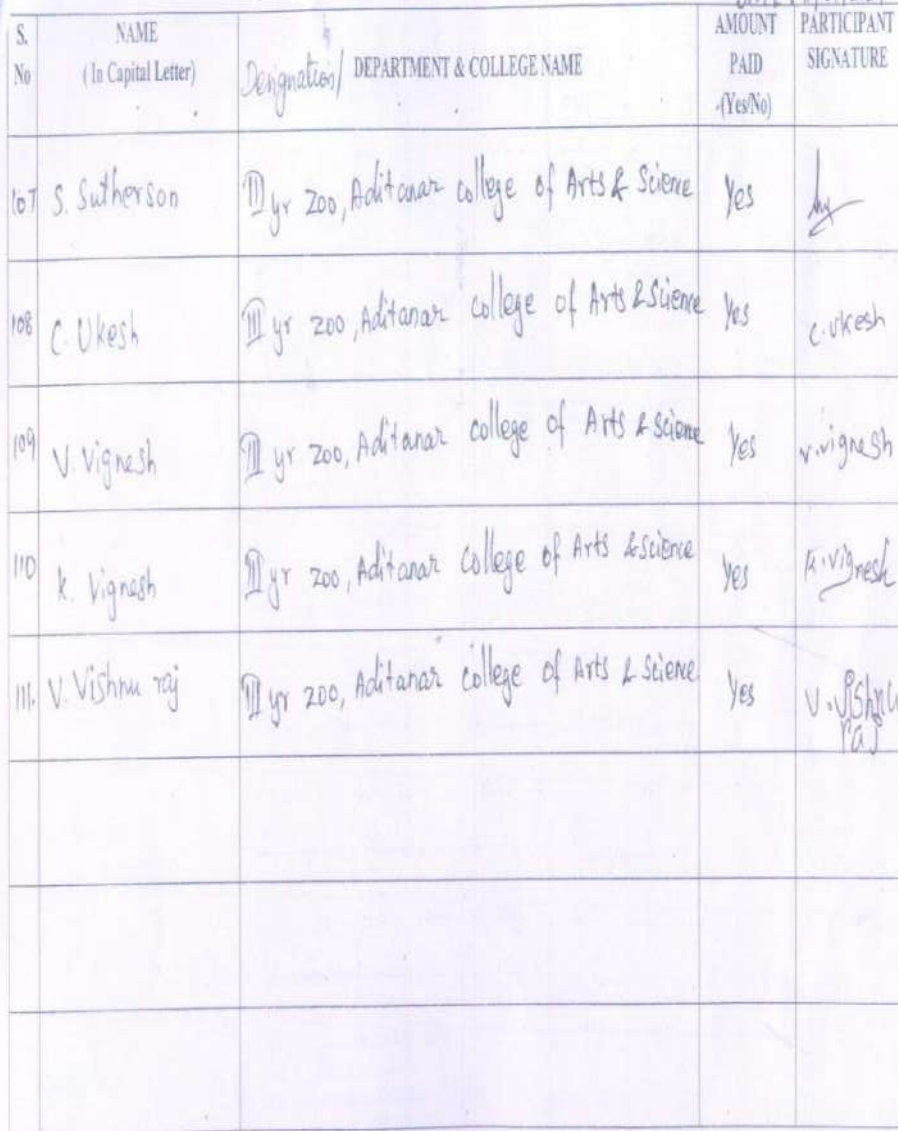 S. No NAME (In Capital Letter) Designation/ DEPARTMENT & COLLEGE NAME AMOUNT PAID (Yes/No) PARTICIPANT SIGNATURE
107 S. Sutherson III yr zoo, Aditanar college of Arts & Science Yes
108 C. Ukesh III yr zoo, Aditanar college of Arts & Science Yes C. Ukesh
109 V. Vignesh III yr zoo, Aditanar college of Arts & Science Yes V. Vignesh
110 K. Vignesh III yr zoo, Aditanar college of Arts & Science Yes K. Vignesh
111. V. Vishnu raj III yr zoo, Aditanar college of Arts & Science Yes V. Vishnu raj